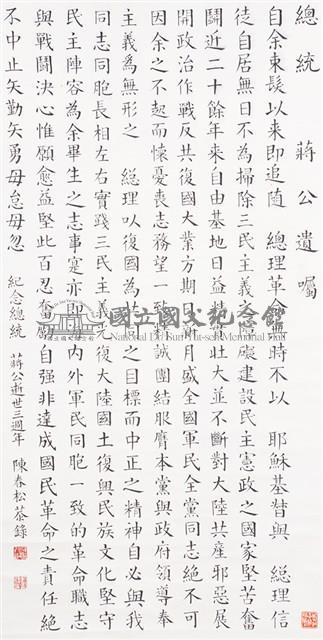 總統　蔣公遺囑
自余束髮以來即追隨　總理革命無時不以　耶穌基督與　總理信
徒自居無日不為掃除三民主義之障礙建設民主憲政之國家堅苦奮
鬪近二十餘年來自由基地日益精實壯大並不斷對大陸共產邪惡展
開政治作戰反共復國大業方期日新月盛全國軍民全黨同志絕不可
因余之不起而懷憂喪志務望一致精誠團結服膺本黨與政府領導奉
主義為無形之　總理以復國為共同之目標而中正之精神自必與我
同志同胞長相左右實踐三民主義光復大陸國土復興民族文化堅守
民主陣容為余畢生之志事寔亦即海內外軍民同胞一致的革命職志
與戰鬪決心惟願愈益堅此百忍奮勵自强非達成國民革命之責任絕
不中止矢勤矢勇毋怠毋忽　紀念總統　蔣公逝世三週年　陳春松恭錄
國立國父紀念館
National Dr. Sun Yat-sen Memorial Hall